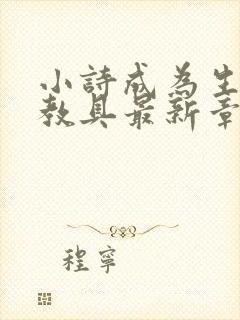 小詩成為生
教具最新章
程寧